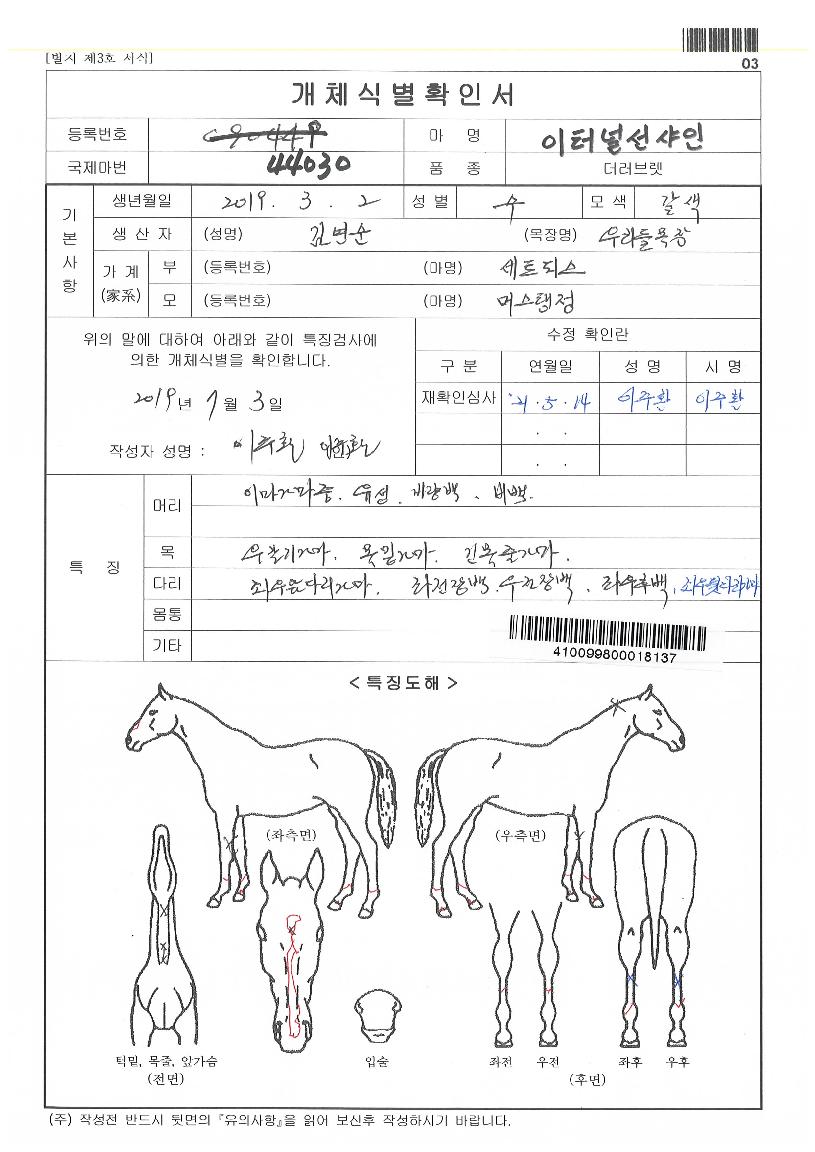 [별지 제3호 서식]
03
개체식별확인서
등록번호 마 명 이터널선샤인
국제마번 44030 품 종 더러브렛
기본사항
생년월일 2019. 3. 2 성별 수 모색 갈색
생산자 (성명) 김병순 (목장명) 우라들목장
가계(家系) 부 (등록번호) (마명) 세트되스
모 (등록번호) (마명) 머스탱정
위의 말에 대하여 아래와 같이 특징검사에
의한 개체식별을 확인합니다.
2019년 7월 3일
작성자 성명 :
수정 확인란
구분 연월일 성명 시명
재확인심사 '21. 5. 14 이주환 이주환
특 징
머리 이마가마중. 유성. 비백.
목 목밑가마. 긴목줄가마.
다리 좌우앞다리가마. 좌우후백.
몸통
기타
410099800018137
< 특징도해 >
(좌측면) (우측면)
턱밑, 목줄, 앞가슴 입술 좌전 우전 좌후 우후
(전면) (후면)
(주) 작성전 반드시 뒷면의 『유의사항』을 읽어 보신후 작성하시기 바랍니다.